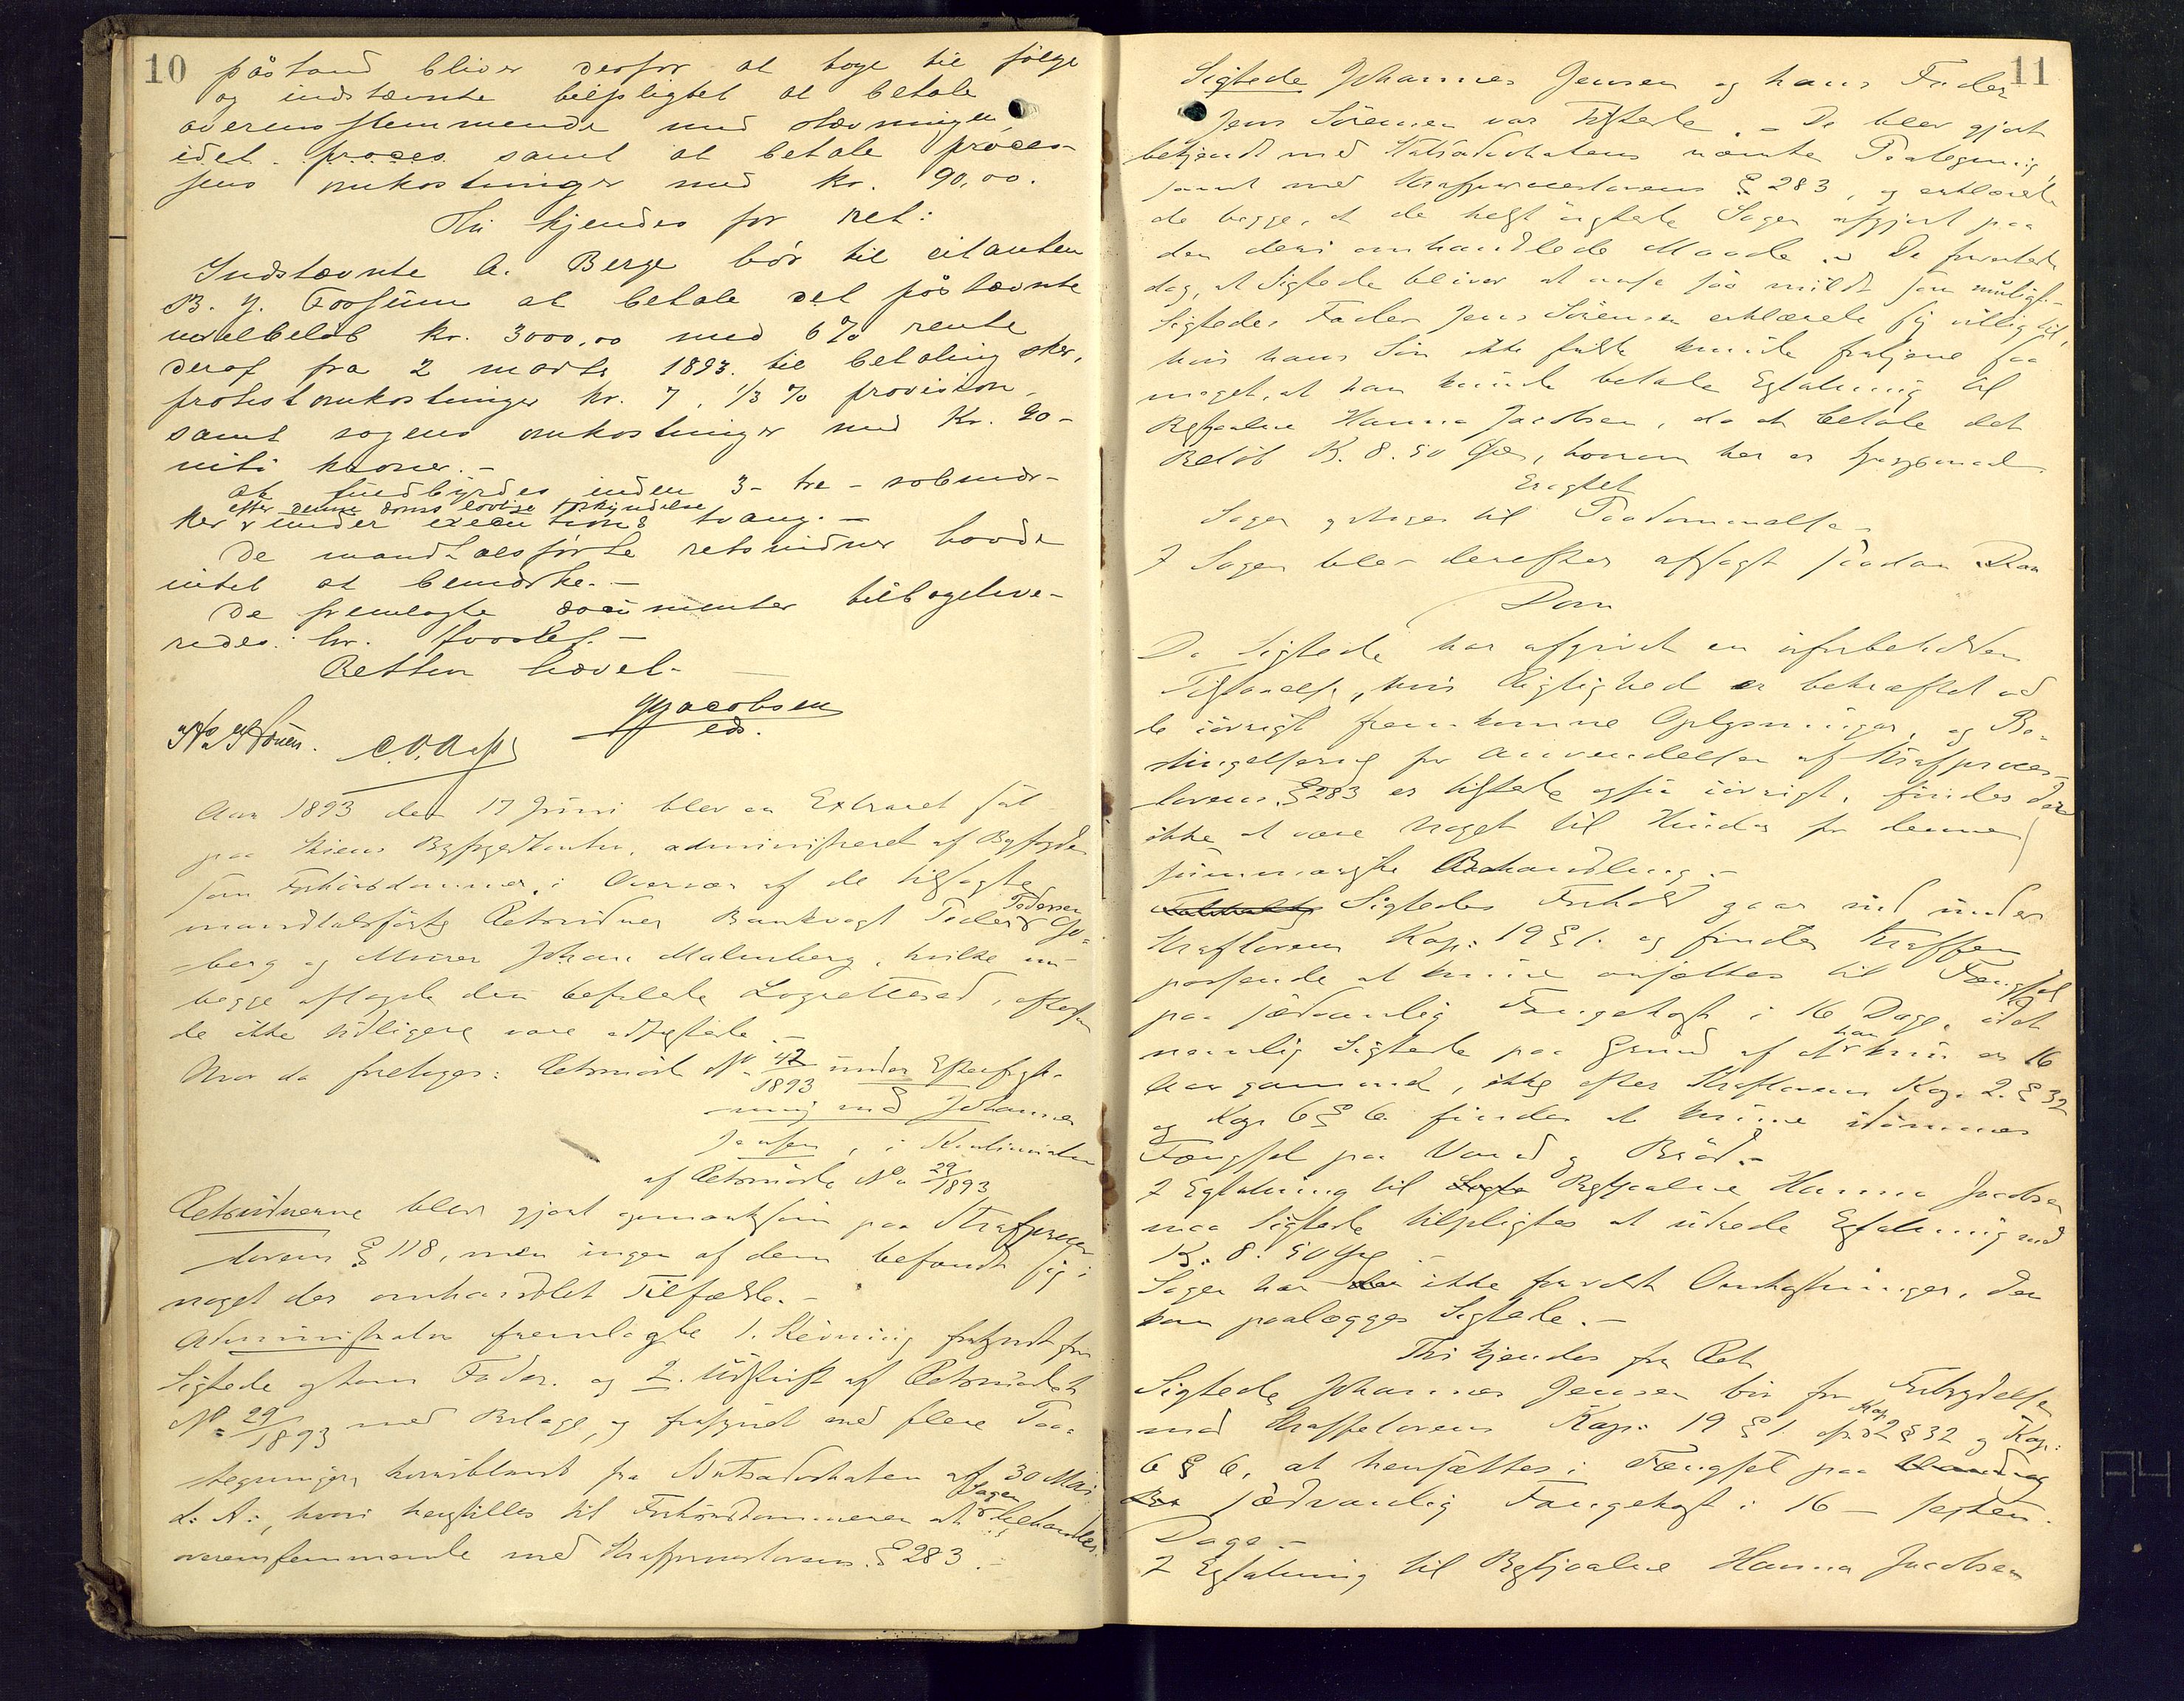 10
påstand bliver derfor at tage til følge
og indstævnte tilpligtet at betale
overensstemmende med stævningen,
idet proces samt at betale proces-
sens omkostninger med kr. 90,00.
Thi kjendes for ret:
Indstævnte A. Berge bør til citanten
B. Y. Fossum at betale det påstævnte
vexelbeløb kr. 3000,00 med 6 % rente
deraf fra 2 marts 1893 til betaling sker,
protestomkostninger kr. 7, 1/3 % provision,
samt sagens omkostninger med Kr. 90 -
niti kroner. -
At fuldbyrdes inden 3 - tre - solemær-
efter denne doms lovlige forkyndelse
ker under executions tvang. -
De mandtalsførte retsvidner havde
intet at bemærke. -
De fremlagte documenter tilbageleve-
redes: hr.
Retten hævet. -
Jacobsen
eds.
Aar 1893 den 17 Juni blev en Extraret sat
paa Skiens Bygfogedkontor, administreret af Byfogden
som Forhørsdommer, i Overvær af de tilsagte
Pedersen
mandtalsførte Retsvidner Bankvagt Peder Go-
berg og Murer Johan Malmberg, hvilke nu
begge aflagde den befalede Lagretteed, eftersom
de ikke tidligere vare edfæstede. -
Hvor da foretages: Retsmøde No 42/1893 under Efterforsk-
ning mod Johannes
Jensen, i Kontinuation
af Retsmøde No 29/1893
Retsvidnerne blev gjort opmærksom paa Straffproces-
lovens § 118, men ingen af dem befandt sig i
noget der omhandlet Tilfælde. -
Administrator fremlagte 1. Stevning forkyndt for
Sigtede og hans Fader. og 2. Udskrift af Retsmødet
No 29/1893 med Bilage, og forsynet med flere Paa-
tegninger, hvoriblandt fra Statsadvokaten af 30 Mai
Sagen
d. A., hvori henstilles til Forhørsdommeren at behandles
overensstemmende med Strafproceslovens § 283. -
11
Sigtede Johannes Jensen og hans Fader
Jens Sørensen var tilstede. - De blev gjort
bekjendt med Statsadvokatens nævnte Paategning,
samt med Strafproceslovens § 283, og erklærede
de begge, at de helst ønskede Sagen afgjort paa
den deri omhandlede Maade. De forventede
dog, at Sigtede bliver at anse saa mildt som muligt. -
Sigtedes Fader Jens Sørensen erklærede sig villig til,
hvis hans Søn ikke skulde kunde fortjene saa
meget, at han kunde betale Erstatning til
Bestjaalne Hanna Jacobsen, da at betale det
Beløb Kr. 8. 50 Øre, hvorom her er Spørgsmaal
Eragtet
Sagen optages til Paadømmelse
I Sagen blev derefter afsagt saadan
Dom
Da Sigtede har afgivet en uforbeholden
Tilstaaelse, hvis Rigtighed er bekræftet ved
de iøvrigt fremkomne Oplysninger, og Be-
tingelserne for Anvendelsen af Strafproces-
lovens § 283 er tilstede ogsaa iøvrigt, findes der
ikke at være noget til Hinder for denne
summariske Behandling. -
Sigtedes Forhold gaar ind under
Straflovens Kap: 19 § 1. og findes Straffen
passende at kunne ansættes til Fængsel
paa sædvanlig Fangekost i 16 Dage, idet
han
nemlig Sigtede paa Grund af at kun er 16
Aar gammel, ikke efter Straflovens Kap. 2. § 32
og Kap 6 § 6. findes at kunne idømmes
Fængsel paa Vand og Brød. -
I Erstatning til Bestjaalne Hanna Jacobsen
maa Sigtede tilpligtes at udrede Erstatning med
Kr. 8. 50 Øre -
Sagen har ikke forvoldt Omkostninger, der
kan paalægges Sigtede. -
Thi kjendes for Ret
Sigtede Johannes Jensen bør for Forbrydelse
Kap
mod Straffelovens Kap: 19 § 1. cfr. 2 § 32 og Kap:
6 § 6, at hensættes i Fængsel paa
sædvanlig Fangekost i 16 - sexten
Dage. -
I Erstatning til Bestjaalne Hanna Jacobsen